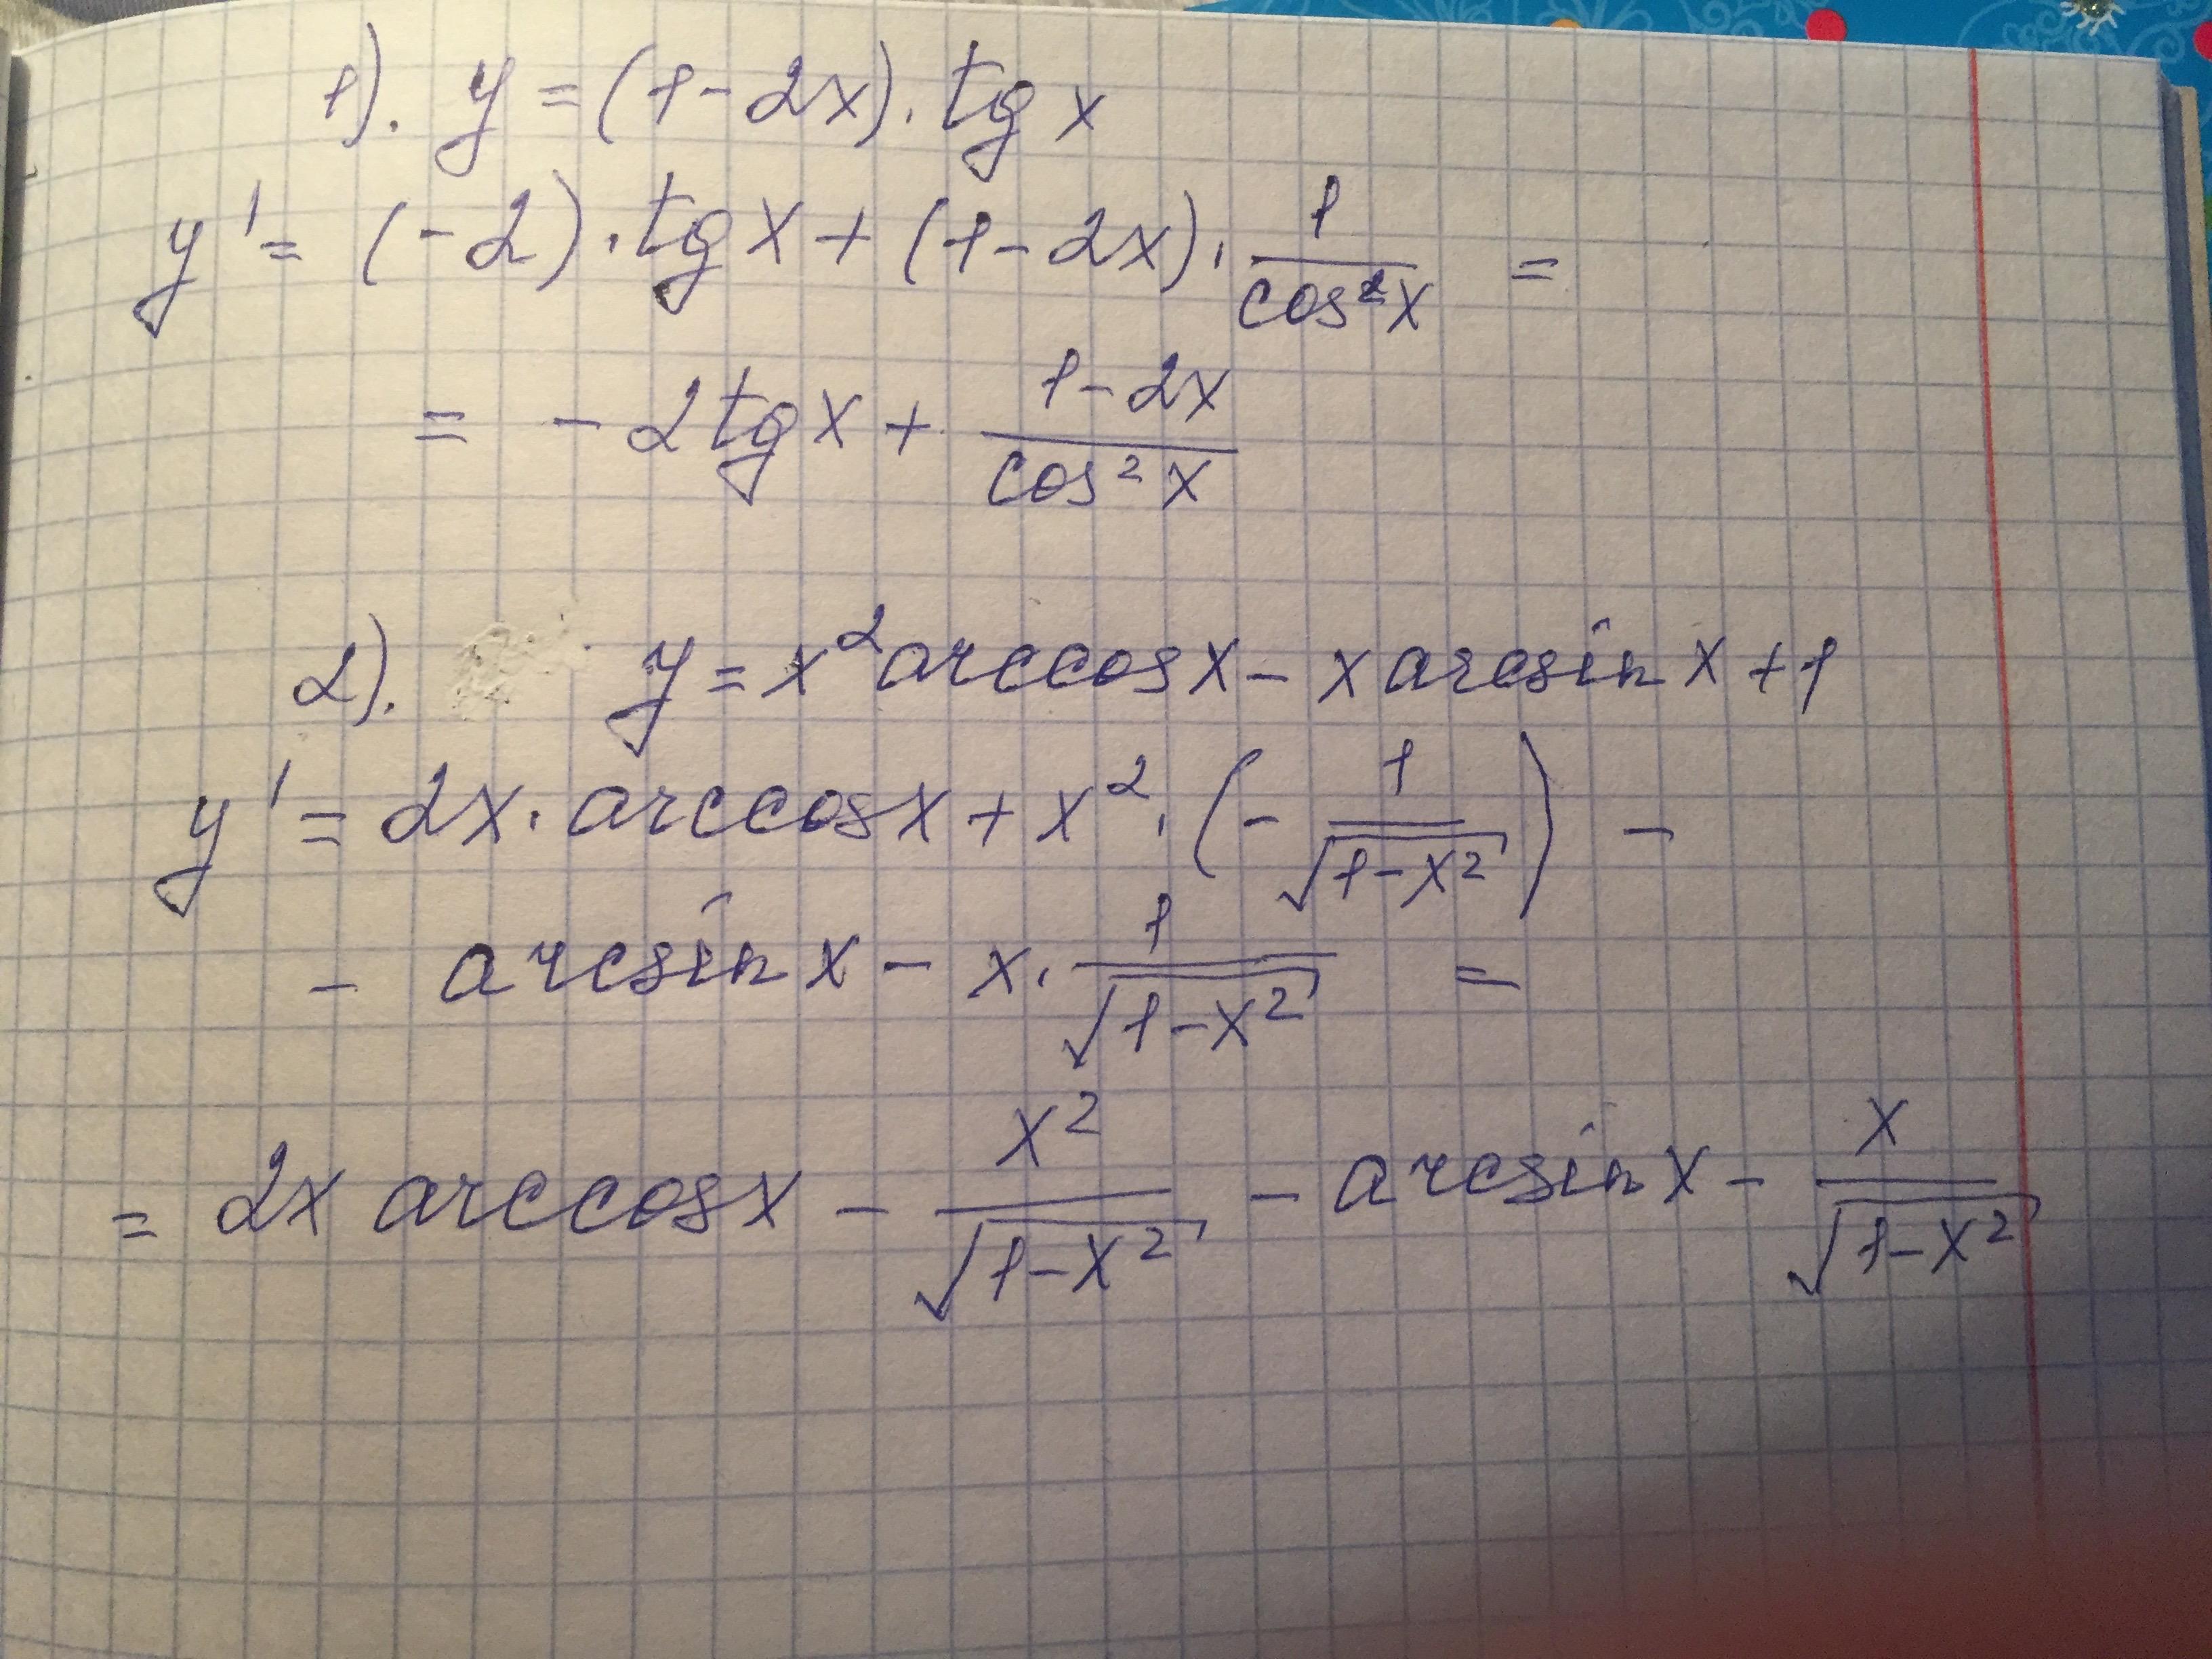 1). y = (1-2x) · tg x
y' = (-2) · tg x + (1-2x) · 1/cos²x =
= -2 tg x + (1-2x)/cos²x
2). y = x² arccos x - x arcsin x + 1
y' = 2x · arccos x + x² · (- 1/√(1-x²)) -
- arcsin x - x · 1/√(1-x²) =
= 2x arccos x - x²/√(1-x²) - arcsin x - x/√(1-x²)